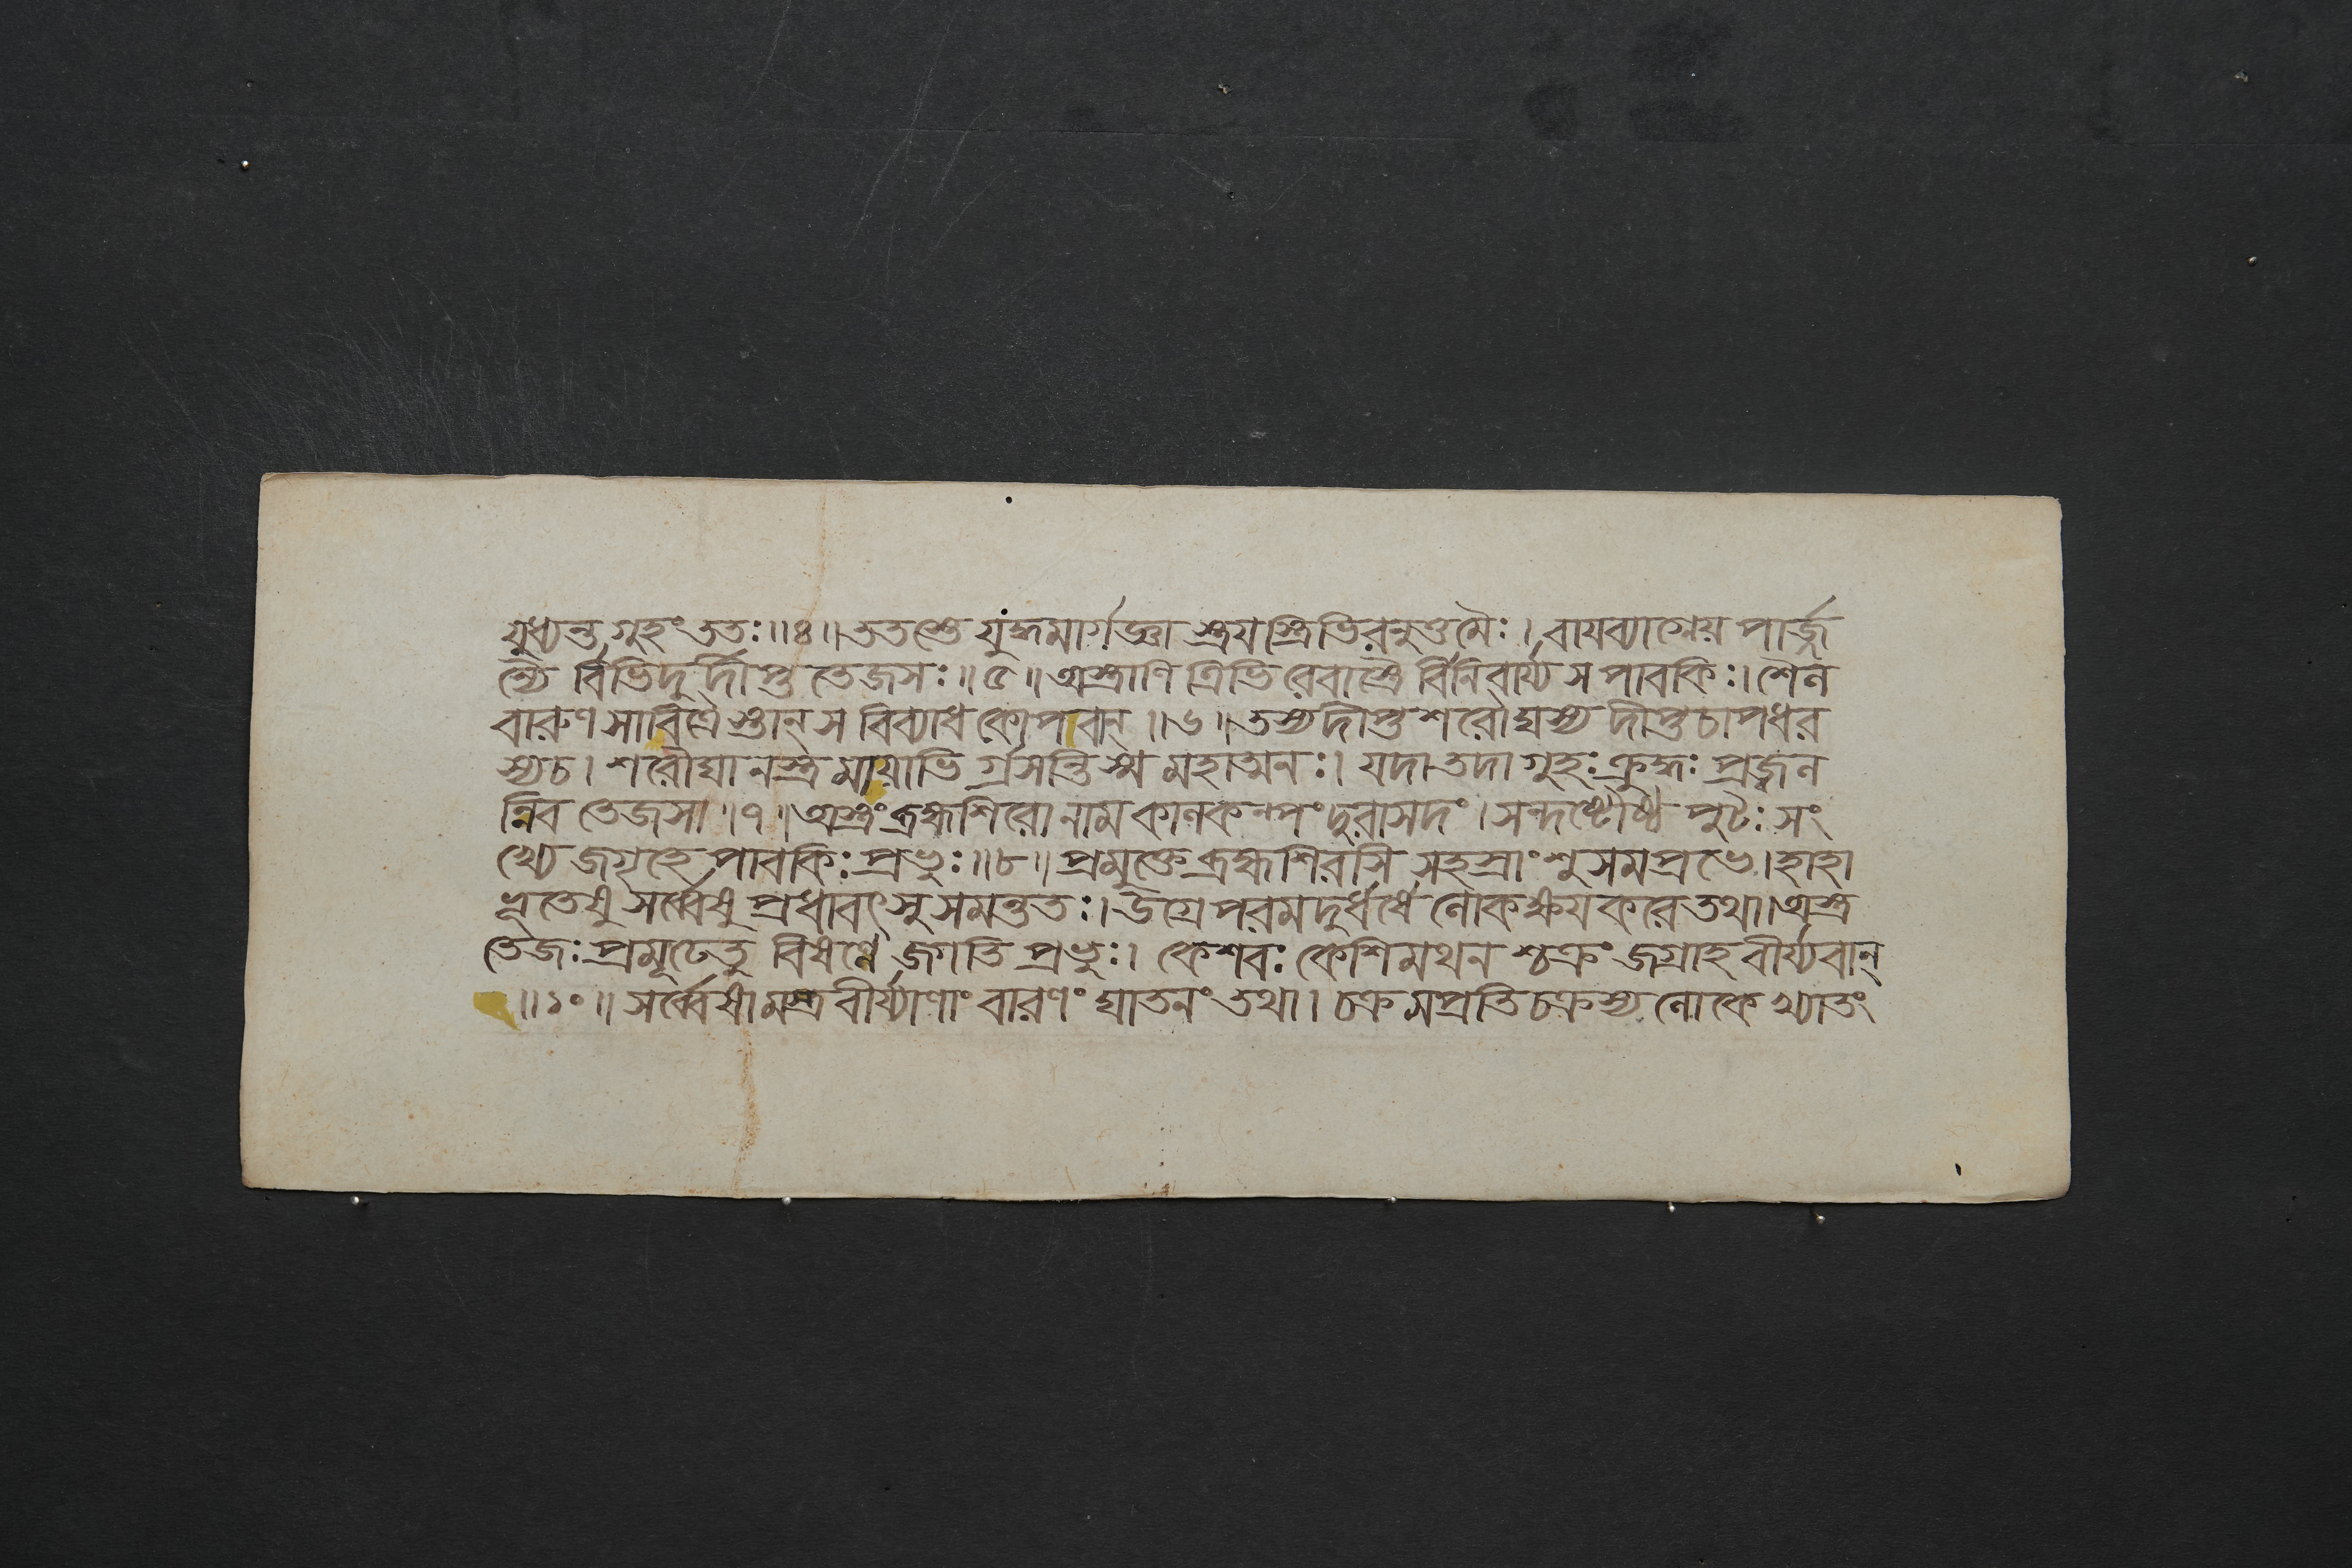 যুধ্যন্ত গুহং ততঃ॥৪॥ততস্তে যুদ্ধমার্গজ্ঞা স্ত্রয়স্ত্রিভিরনুত্তমৈঃ। বায়ব্যাগ্নেয় পার্জ্জ
ন্যৈ র্বিভিদু র্দীপ্ত তেজসঃ॥৫॥ অস্ত্রাণি ত্রিভি রেবাস্ত্রৈ র্বিনিবার্য্য স পাবকিঃ। শৈল
বারুণ সাবিত্রৈ স্তান্ স বিব্যাধ কোপবান্॥৬॥তস্য দীপ্ত শরৌঘস্য দীপ্ত চাপধর
স্য চ। শরৌঘা নস্ত্র মায়াভি র্গ্রসন্তি স্ম মহাত্মনঃ। যদা তদা গুহঃ ক্রুদ্ধঃ প্রজ্বল
ন্নিব তেজসা॥৭॥অস্ত্রং ব্রহ্মশিরো নাম কালকল্পং দুরাসদং। সন্দষ্টৌষ্ঠ পুটঃ সং
খ্যে জগৃহে পাবকিঃ প্রভুঃ॥৮॥ প্রমুক্তে ব্রহ্মশিরসি সহস্রাংশুসমপ্রভে। হাহা
ভূতেষু সর্ব্বেষু প্রধাবৎসু সমন্ততঃ। উগ্রে পরমদুর্ধর্ষে লোকক্ষয়করে তথা। অস্ত্র
তেজঃ প্রমূঢে তু বিষণ্ণে জগতি প্রভুঃ। কেশবঃ কেশিমথন শ্চক্রং জগ্রাহ বীর্য্যবান্
॥১০॥ সর্ব্বেষা মস্ত্রবীর্য্যাণাং বারণং ঘাতনং তথা। চক্র মপ্রতিচক্রস্য লোকে খ্যাতং